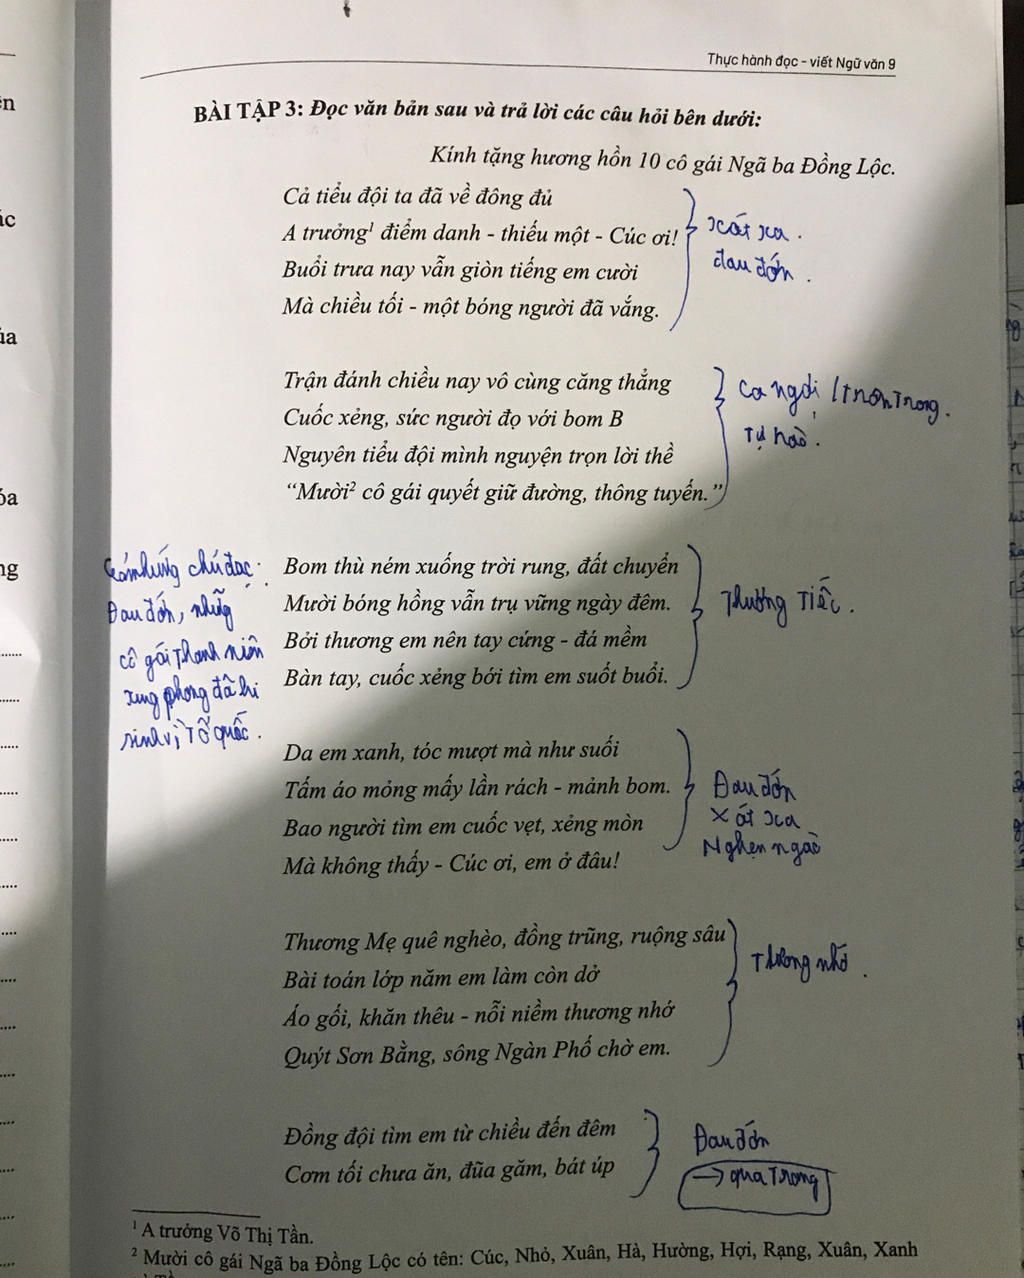 Thực hành đọc - viết Ngữ văn 9
BÀI TẬP 3: Đọc văn bản sau và trả lời các câu hỏi bên dưới:
Kính tặng hương hồn 10 cô gái Ngã ba Đồng Lộc.
Cả tiểu đội ta đã về đông đủ
A trưởng¹ điểm danh - thiếu một - Cúc ơi!
Buổi trưa nay vẫn giòn tiếng em cười
Mà chiều tối - một bóng người đã vắng.
xót xa.
đau đớn.
Trận đánh chiều nay vô cùng căng thẳng
Cuốc xẻng, sức người đọ với bom B
Nguyên tiểu đội mình nguyện trọn lời thề
“Mười² cô gái quyết giữ đường, thông tuyến.”
Ca ngợi / trân trọng.
Tự hào.
Bom thù ném xuống trời rung, đất chuyển
Mười bóng hồng vẫn trụ vững ngày đêm.
Bởi thương em nên tay cứng - đá mềm
Bàn tay, cuốc xẻng bới tìm em suốt buổi.
Thương Tiếc.
Cảm hứng chủ đạo:
Đau đớn, những
cô gái thanh niên
xung phong đã hi
sinh vì Tổ quốc.
Da em xanh, tóc mượt mà như suối
Tấm áo mỏng mấy lần rách - mảnh bom.
Bao người tìm em cuốc vẹt, xẻng mòn
Mà không thấy - Cúc ơi, em ở đâu!
Đau đớn
Xót xa
Nghẹn ngào
Thương Mẹ quê nghèo, đồng trũng, ruộng sâu
Bài toán lớp năm em làm còn dở
Áo gối, khăn thêu - nỗi niềm thương nhớ
Quýt Sơn Bằng, sông Ngàn Phố chờ em.
Thương nhớ.
Đồng đội tìm em từ chiều đến đêm
Cơm tối chưa ăn, đũa găm, bát úp
Đau đớn
→ qua Trong
¹ A trưởng Võ Thị Tần.
² Mười cô gái Ngã ba Đồng Lộc có tên: Cúc, Nhỏ, Xuân, Hà, Hường, Hợi, Rạng, Xuân, Xanh